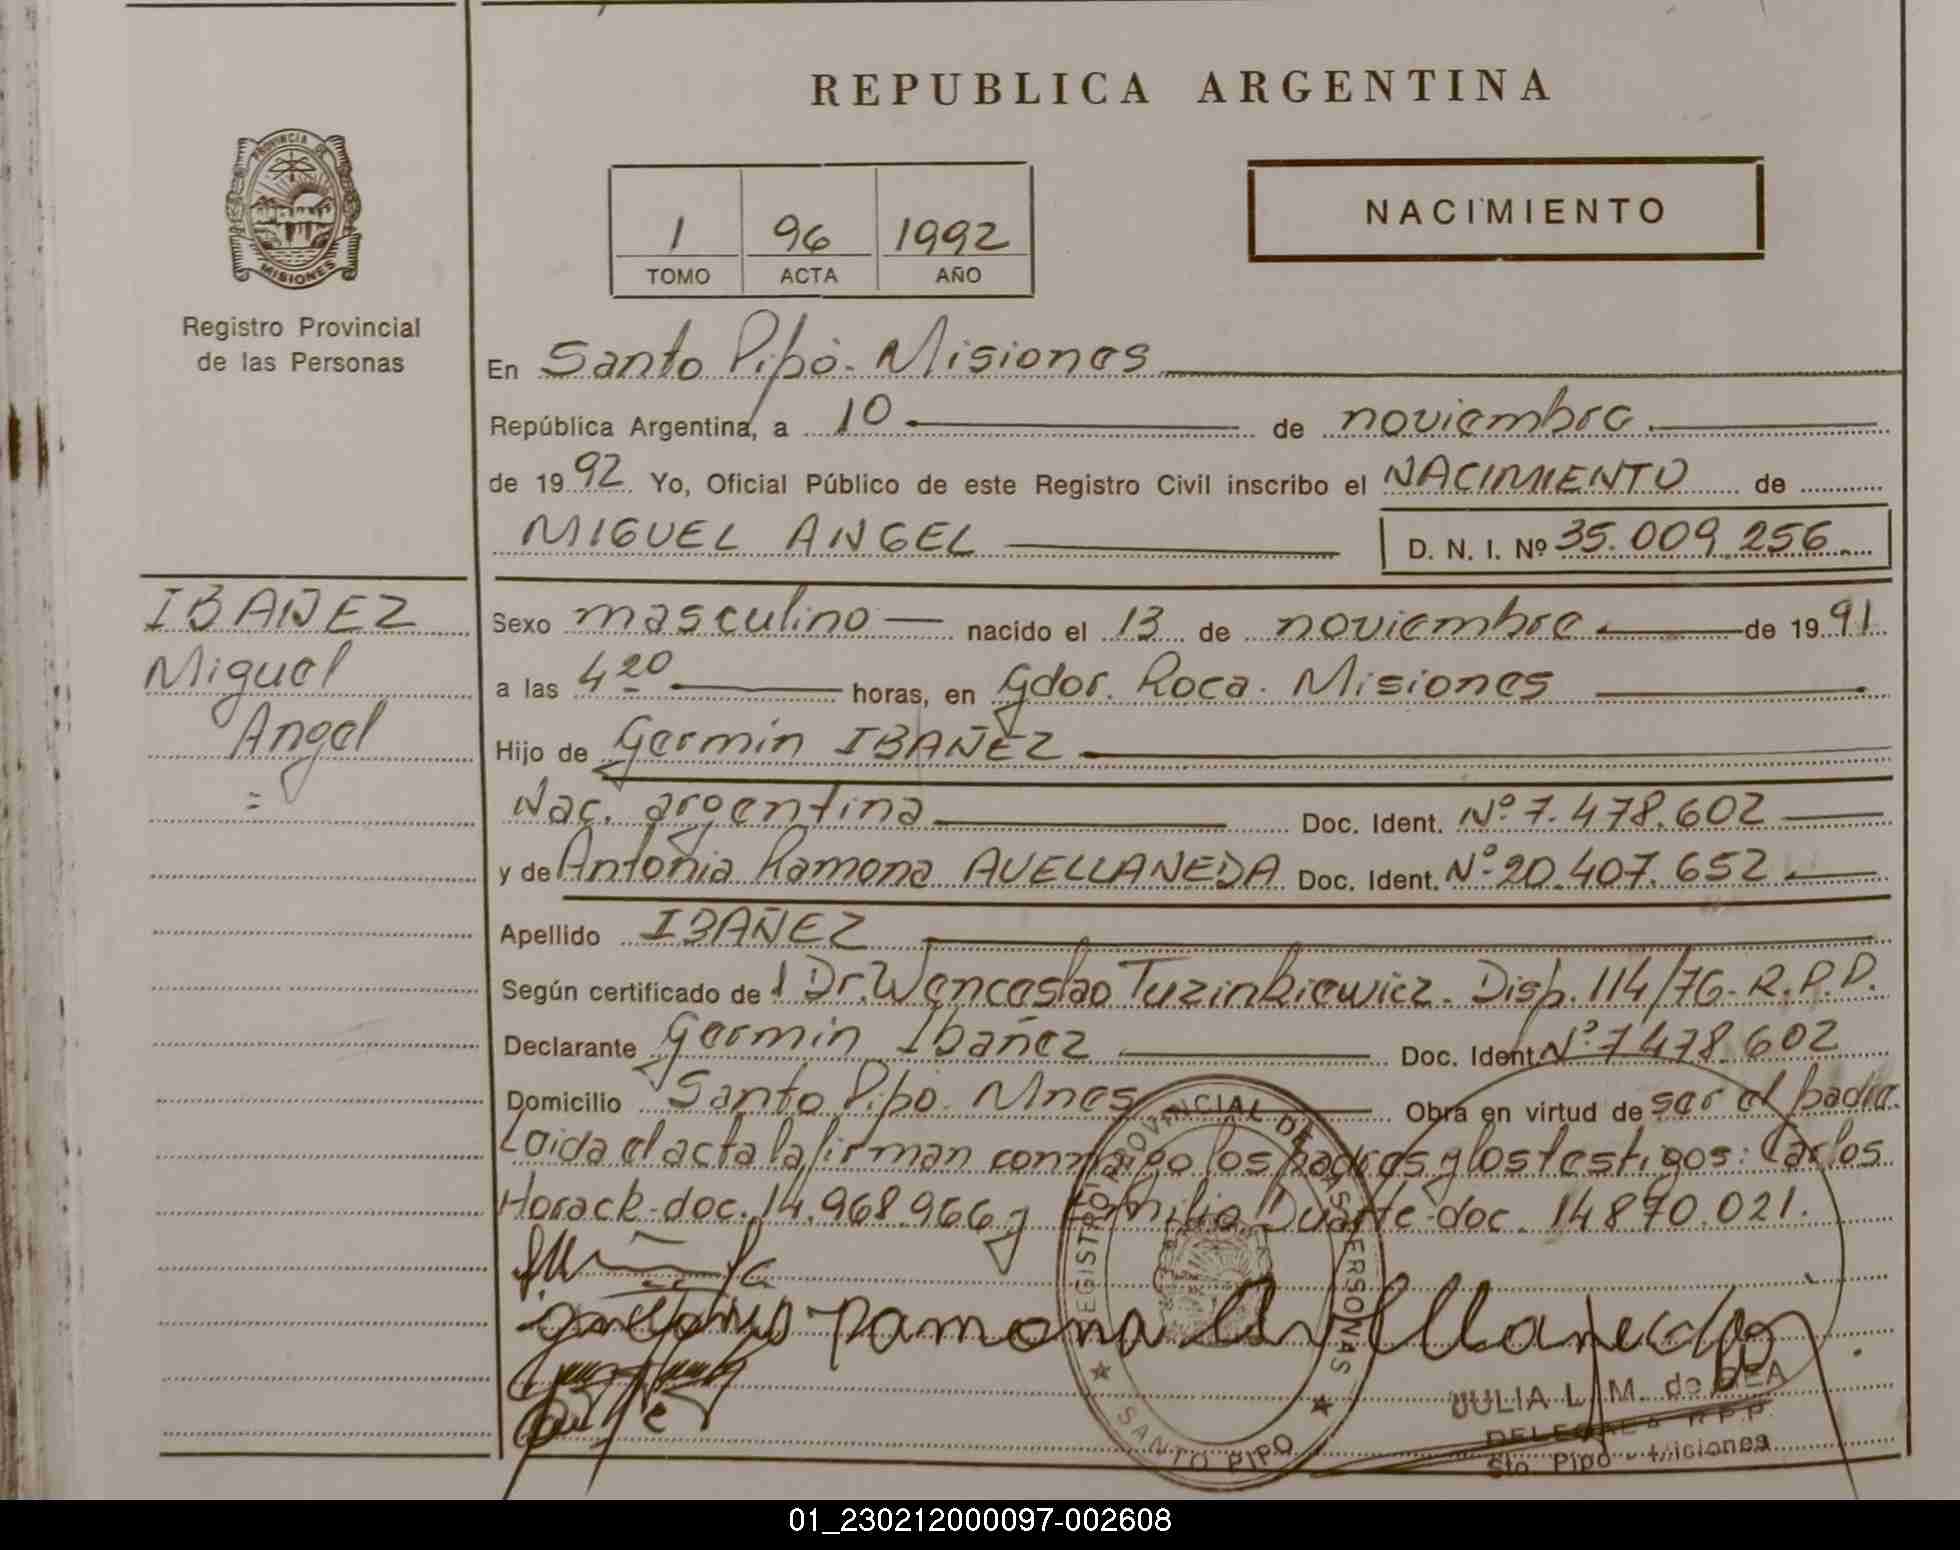 REPUBLICA ARGENTINA
PROVINCIA DE
MISIONES
Registro Provincial
de las Personas
1 96 1992
TOMO ACTA AÑO
NACIMIENTO
En Santo Pipó. Misiones
República Argentina, a 10 de noviembre
de 1992 Yo, Oficial Público de este Registro Civil inscribo el NACIMIENTO de
MIGUEL ANGEL D. N. I. Nº 35.009.256
IBAÑEZ
Miguel
Angel
=
Sexo masculino nacido el 13 de noviembre de 1991
a las 4 20 horas, en Gdor. Roca. Misiones
Hijo de Germin IBAÑEZ
Nac. argentina Doc. Ident. Nº 7.478.602
y de Antonia Ramona AVELLANEDA Doc. Ident. Nº 20.407.652
Apellido IBAÑEZ
Según certificado del Dr. Wenceslao Tuzinkiewicz. Disp. 114/76-R.P.P.
Declarante Germin Ibañez Doc. Ident. Nº 7478.602
Domicilio Santo Pipó. Mnes Obra en virtud de ser el padre.
Leida el acta la firman conmigo los padres y los testigos: Carlos
Horack-doc. 14.968.966 y Emilio Duarte-doc. 14870.021.
Ramona Avellaneda
REGISTRO PROVINCIAL DE LAS PERSONAS
★ SANTO PIPO ★
JULIA L. M. de BEA
DELEGADA R.P.P.
Sto. Pipó - Misiones
01_230212000097-002608